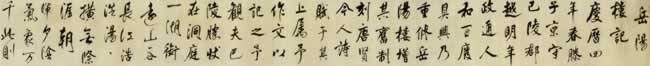 岳陽
樓記
慶曆四
年春滕
子京守
巴陵郡
越明年
政通人
和百廢
具興乃
重修岳
陽樓增
其舊制
刻唐賢
今人詩
賦于其
上属予
作文以
記之予
觀夫巴
陵勝狀
在洞庭
一湖銜
遠山吞
長江浩
浩湯湯
橫無際
涯朝
暉夕陰
氣象万
千此則